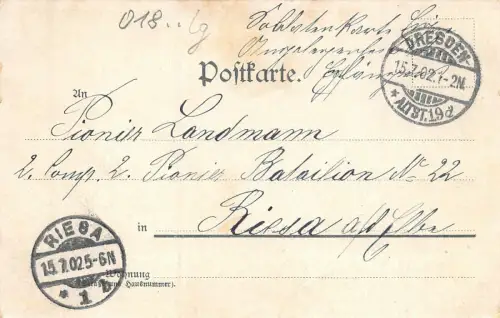 018..lg
Soldatenkarte Eig.
Angelegenheit
Empfängers
DRESDEN-
15.7.02.1-2N.
* ALTST.19d
Postkarte.
An
Pionier Landmann
2. Comp. 2. Pionier Batailion No 22
in Riesa a/d Elbe
RIESA
15.7.02.5-6N
* 1 b
Wohnung
(Straße und Hausnummer).